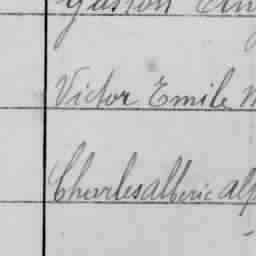 Gaston
Victor Emile
Charles alberic alp